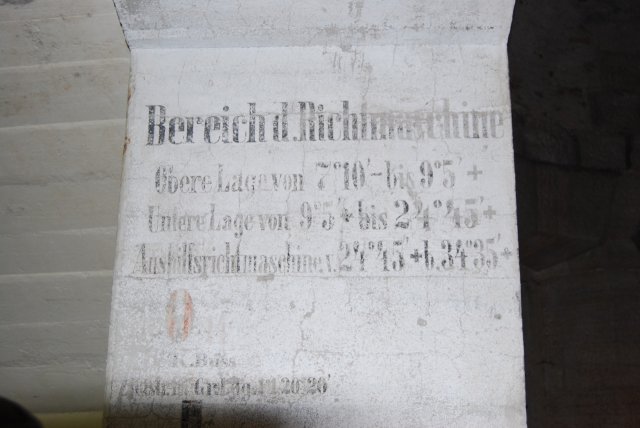 Bereich d. Richtmaschine
Obere Lage von 7°10'- bis 9°5'+
Untere Lage von 9°5'+ bis 24°45'+
Aushilfsrichtmaschine v. 24°45'+ b. 34°35'+
0